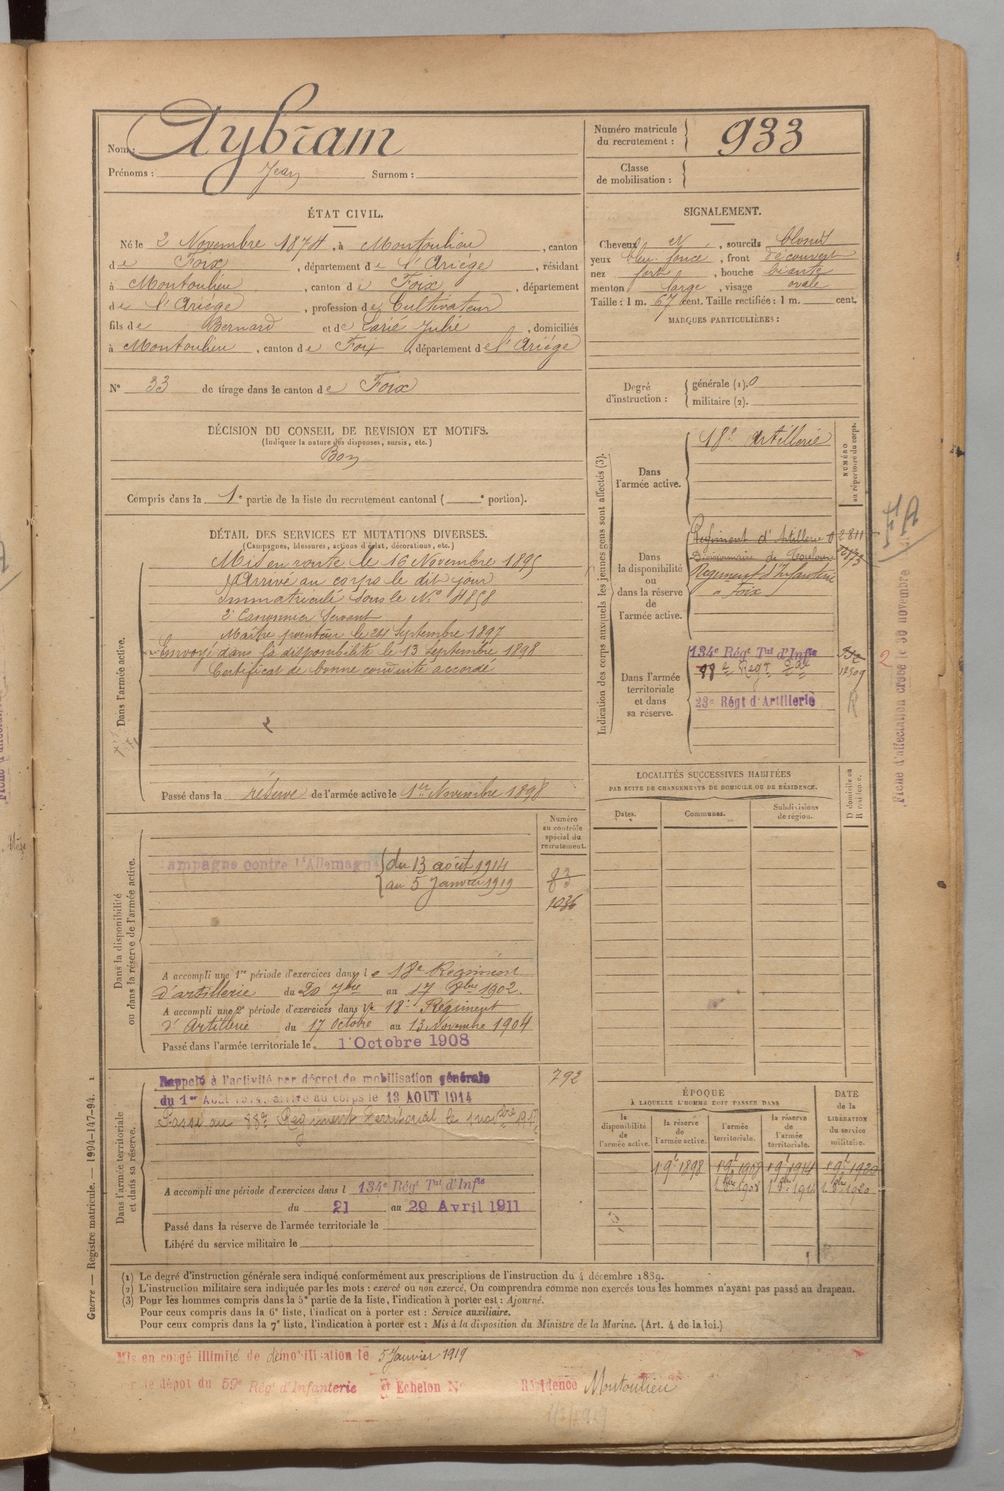 Nom : Aybram
Prénoms : Jean Surnom :
Numéro matricule du recrutement : 933
Classe de mobilisation :
ÉTAT CIVIL.
Né le 2 Novembre 1874, à Montoulieu, canton
de Foix, département de l'Ariége, résidant
à Montoulieu, canton de Foix, département
de l'Ariége, profession de Cultivateur
fils de Bernard et de Carié Julie, domiciliés
à Montoulieu, canton de Foix, département de l'Ariége
N° 33 de tirage dans le canton de Foix
SIGNALEMENT.
Cheveux N, sourcils blonds
yeux bleu foncé, front découvert
nez fort, bouche béante
menton large, visage ovale
Taille : 1 m. 67 cent. Taille rectifiée : 1 m. cent.
MARQUES PARTICULIÈRES :
Degré d'instruction : générale (1). 0
militaire (2).
DÉCISION DU CONSEIL DE REVISION ET MOTIFS.
(Indiquer la nature des dispenses, sursis, etc.)
Bon
Compris dans la 1e partie de la liste du recrutement cantonal ( e portion).
DÉTAIL DES SERVICES ET MUTATIONS DIVERSES.
(Campagnes, blessures, actions d'éclat, décorations, etc.)
Dans l'armée active.
Mis en route le 16 Novembre 1895
Arrivé au corps le dit jour
Immatriculé sous le N° 4858
2e Canonnier Servant
Maître pointeur le 24 Septembre 1897
Envoyé dans la disponibilité le 13 septembre 1898
Certificat de bonne conduite accordé
Passé dans la réserve de l'armée active le 1er Novembre 1898
Indication des corps auxquels les jeunes gens sont affectés (3).
NUMÉRO au répertoire du corps.
Dans l'armée active.
18e Artillerie
Dans la disponibilité ou dans la réserve de l'armée active.
Régiment d'Artillerie 2811
de Toulouse
Régiment d'Infanterie
à Foix
Dans l'armée territoriale et dans sa réserve.
134e Régt Tal d'Infie
88e Regt
23e Régt d'Artillerie R
FA
Fiche d'affectation créée le 30 novembre
LOCALITÉS SUCCESSIVES HABITÉES
PAR SUITE DE CHANGEMENTS DE DOMICILE OU DE RÉSIDENCE.
Dates. Communes. Subdivisions de région. D domicile ou R résidence.
Dans la disponibilité ou dans la réserve de l'armée active.
Numéro au contrôle spécial du recrutement.
Campagne contre l'Allemagne du 13 août 1914
au 5 Janvier 1919
83
1036
A accompli une 1re période d'exercices dans le 18e Régiment
d'artillerie du 20 7bre au 17 8bre 1902.
A accompli une 2e période d'exercices dans le 18e Régiment
d'Artillerie du 17 octobre au 13 Novembre 1904
Passé dans l'armée territoriale le 1 Octobre 1908
Dans l'armée territoriale et dans sa réserve.
792
Rappelé à l'activité par décret de mobilisation générale
du 1er Août 1914, arrivé au corps le 13 AOUT 1914
Passé au 88e Régiment territorial le
A accompli une période d'exercices dans l 134e Régt Tal d'Infie
du 21 au 29 Avril 1911
Passé dans la réserve de l'armée territoriale le
Libéré du service militaire le
ÉPOQUE
À LAQUELLE L'HOMME DOIT PASSER DANS
DATE de la LIBÉRATION du service militaire.
la disponibilité de l'armée active. la réserve de l'armée active. l'armée territoriale. la réserve de l'armée territoriale.
(1) Le degré d'instruction générale sera indiqué conformément aux prescriptions de l'instruction du 4 décembre 1889.
(2) L'instruction militaire sera indiquée par les mots : exercé ou non exercé. On comprendra comme non exercés tous les hommes n'ayant pas passé au drapeau.
(3) Pour les hommes compris dans la 5e partie de la liste, l'indication à porter est : Ajourné.
Pour ceux compris dans la 6e liste, l'indication à porter est : Service auxiliaire.
Pour ceux compris dans la 7e liste, l'indication à porter est : Mis à la disposition du Ministre de la Marine. (Art. 4 de la loi.)
Guerre — Registre matricule. — 1994-147-94. 1
Mis en congé illimité de démobilisation le 5 Janvier 1919
le dépôt du 59e Régt d'Infanterie et Echelon N° Résidence Montoulieu